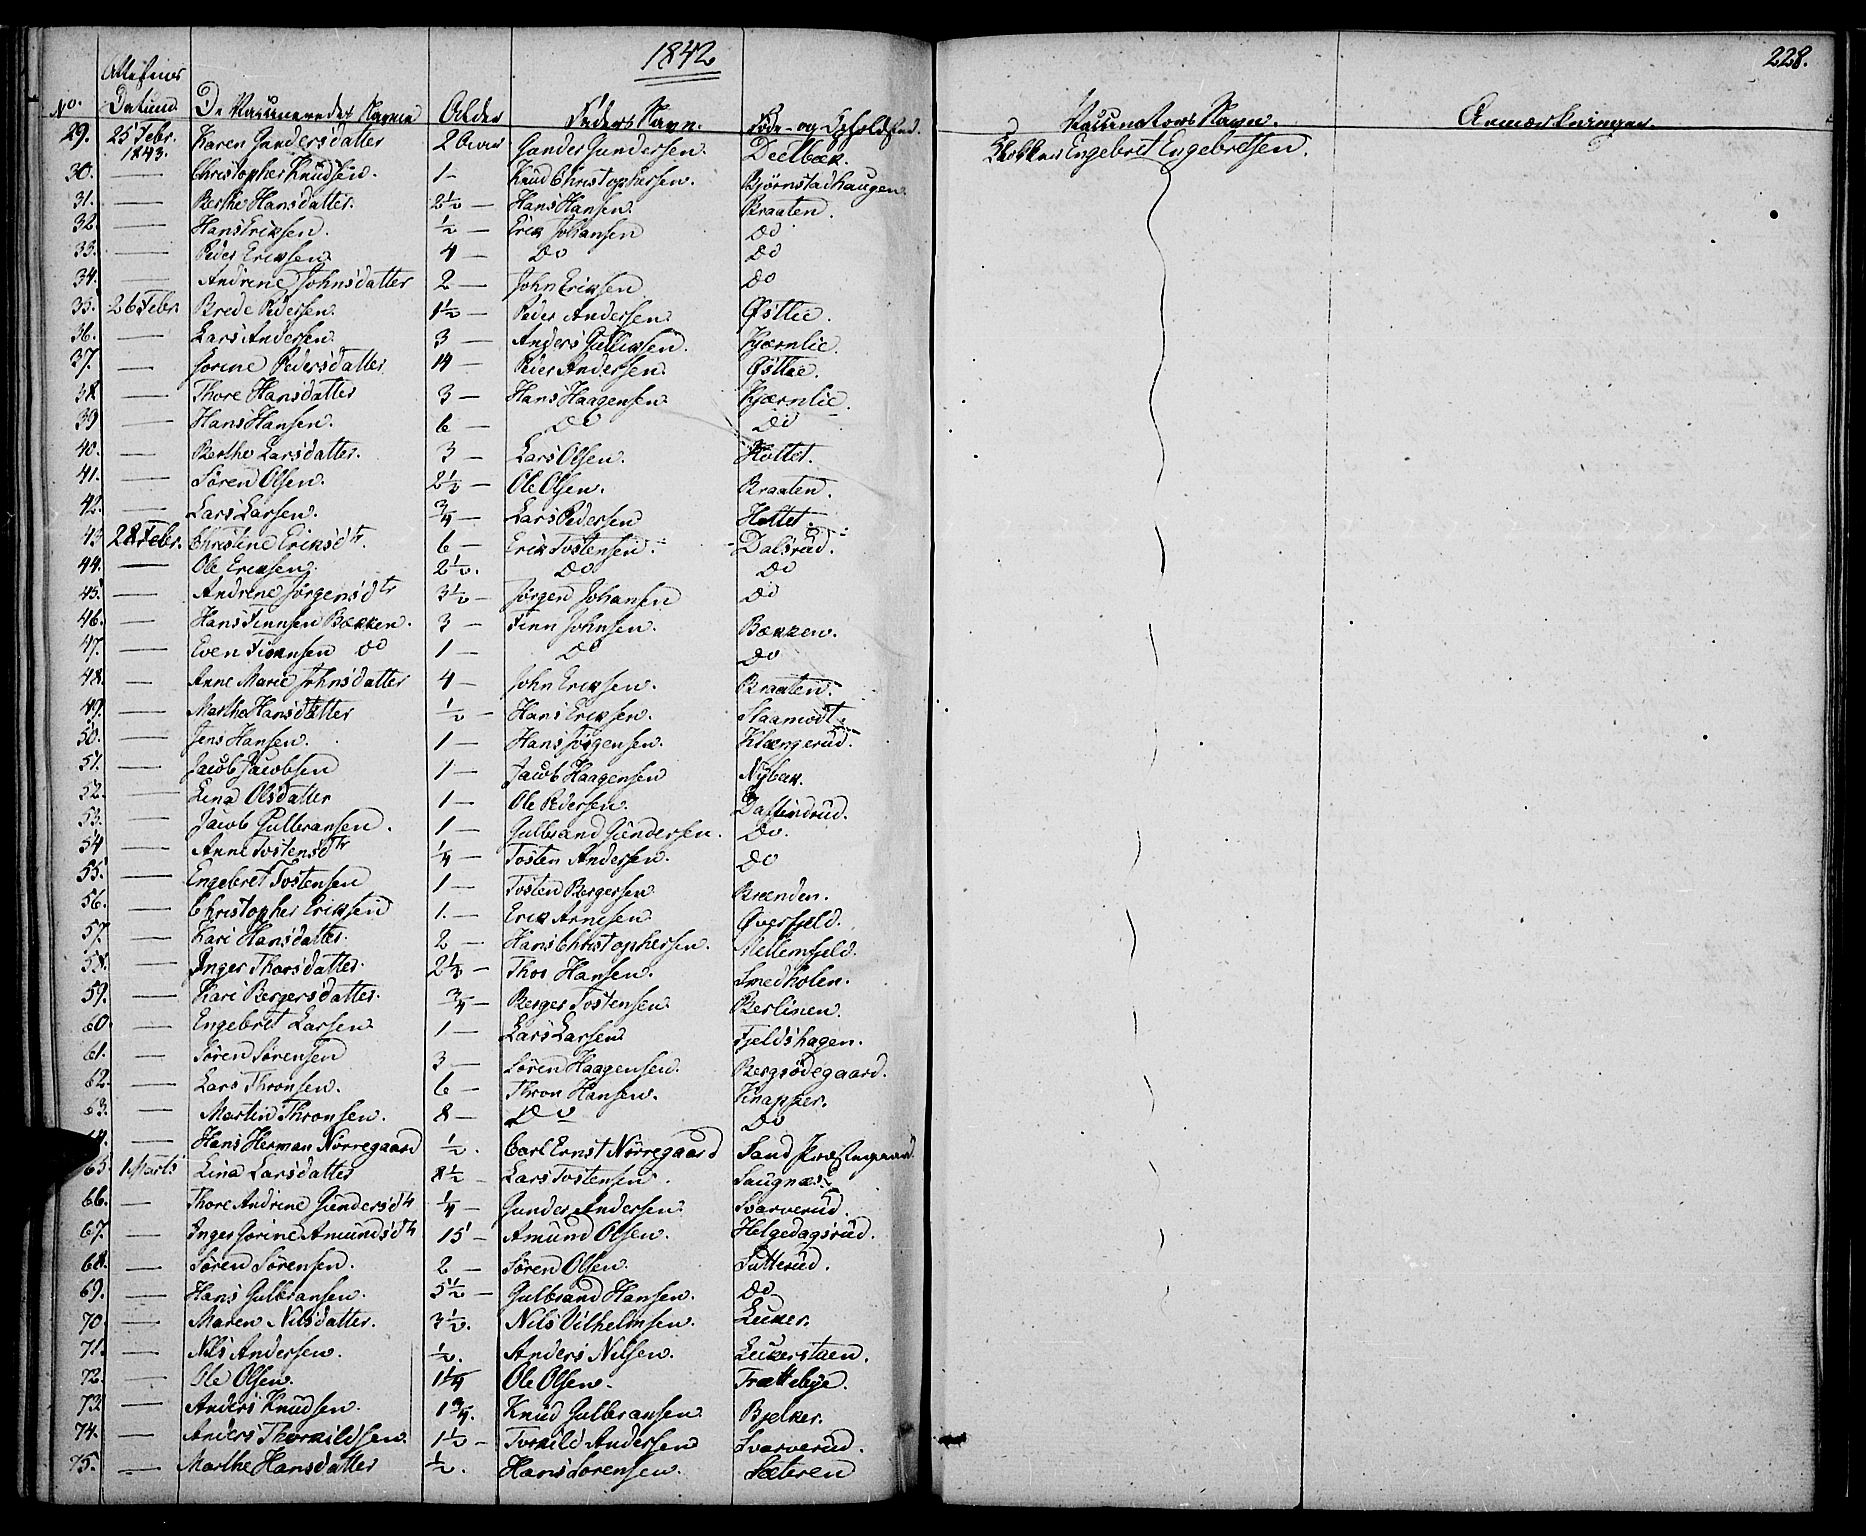 1842
228.
No. Attestens Datum De Vaccineredes Navne Alder Faders Navn. Føde- og Opholdsted. Vaccinators Navn. Anmærkninger.
29. 25 Febr. 1843. Karen Gundersdatter 2 Gunder Gundersen. Deelbæk. Engebret Engebretsen.
30. — Christopher Knudsen. 1 — Knud Christophersen. Bjørnstadhaugen.
31. — Berthe Hansdatter. 2½ — Hans Hansen. Braaten.
32. — Hans Eriksen. ½ — Erik Johansen Do
33. — Peder Eriksen. 4 — Do Do
34. — Andrine Johnsdatter 2 — John Eriksen Do
35. 26 Febr. Brede Pedersen. 1½ — Peder Andersen. Østlie.
36. — Lars Andersen. 3 — Anders Gulliksen. Kjærnlie.
37. — Jorine Pedersdatter 14 — Peder Andersen. Østlie.
38. — Thore Hansdatter 3 — Hans Haagensen. Kjærnlie.
39 — Hans Hansen. 6 — Do Do
40. — Berthe Larsdatter. 3 — Lars Olsen. Hottet.
41. — Søren Olsen. 2½ — Ole Olsen. Braaten.
42. — Lars Larsen. ¾ — Lars Pedersen Hottet.
43 28 Febr. Christine Eriksdtr. 6 — Erik Tostensen. Dalsrud.
44. — Ole Eriksen. 2½. Do Do
45. — Andrine Jørgensdtr 3½ — Jørgen Johansen Do
46. — Hans Finnsen Bækken. 3 — Finn Johnsen. Bækken.
47. — Even Finnsen Do 1 — Do Do
48. — Anne Marie Johnsdatter 4 — John Eriksen. Braaten.
49. — Marthe Hansdatter ½ — Hans Eriksen. Slaamodt.
50. — Jens Hansen. 1 — Hans Jørgensen. Klængerud.
51. — Jacob Jacobsen 1 — Jacob Haagensen Nybak.
52. — Lina Olsdatter 1 — Ole Pedersen. Daffindrud.
53. — Jacob Gulbransen. 1 — Gulbrand Gundersen. Do.
54 — Anne Tostensdtr ¼ — Tosten Andersen. Do
55. — Engebret Tostensen 1 — Tosten Bergersen Brænden.
56. — Christopher Eriksen 1. — Erik Arnesen. Øverfjeld.
57. — Kari Hansdatter. 2 — Hans Christophersen. Mellemfjeld.
58. — Inger Thorsdatter. 2½ — Thor Hansen. Smedholen.
59. — Kari Bergersdatter. ¾ — Berger Tostensen. Berlinen.
60. — Engebret Larsen. 1 — Lars Larsen Fjeldshagen.
61. — Søren Sørensen 3 — Søren Haagensen. Bergsødegaard.
62. — Lars Thronsen. 6 — Thron Hansen. Knapper.
63. — Martin Thronsen. 8 — Do Do
64. — Hans Herman Nørregaard ½. Carl Ernst Nørregaard Sand Præstegaard.
65 1 Marts Lina Larsdatter 8½ — Lars Tostensen. Saugnæs.
66. — Thore Andrine Gundersdtr ¼ — Gunder Andersen. Svarverud.
67. — Inger Jorine Amundsdtr 15 — Amund Olsen. Helgedagsrud.
68. — Søren Sørensen. 2 — Søren Olsen. Sutterud.
69. — Hans Gulbransen. 5½ — Gulbrand Hansen. Do
70 — Maren Nilsdatter. 3½. Nils Vilhelmsen. Luker.
71. — Nils Andersen. ½. Anders Nilsen. Lukerstuen.
72. — Ole Olsen. 1¼ Ole Olsen. Trættebye.
73. — Anders Knudsen. 1¾. Knud Gulbransen. Bjelker.
74. — Anders Thorkildsen. 1½ — Torkild Andersen Svarverud.
75. — Marthe Hansdatter ½. Hans Sorensen. Sæteren